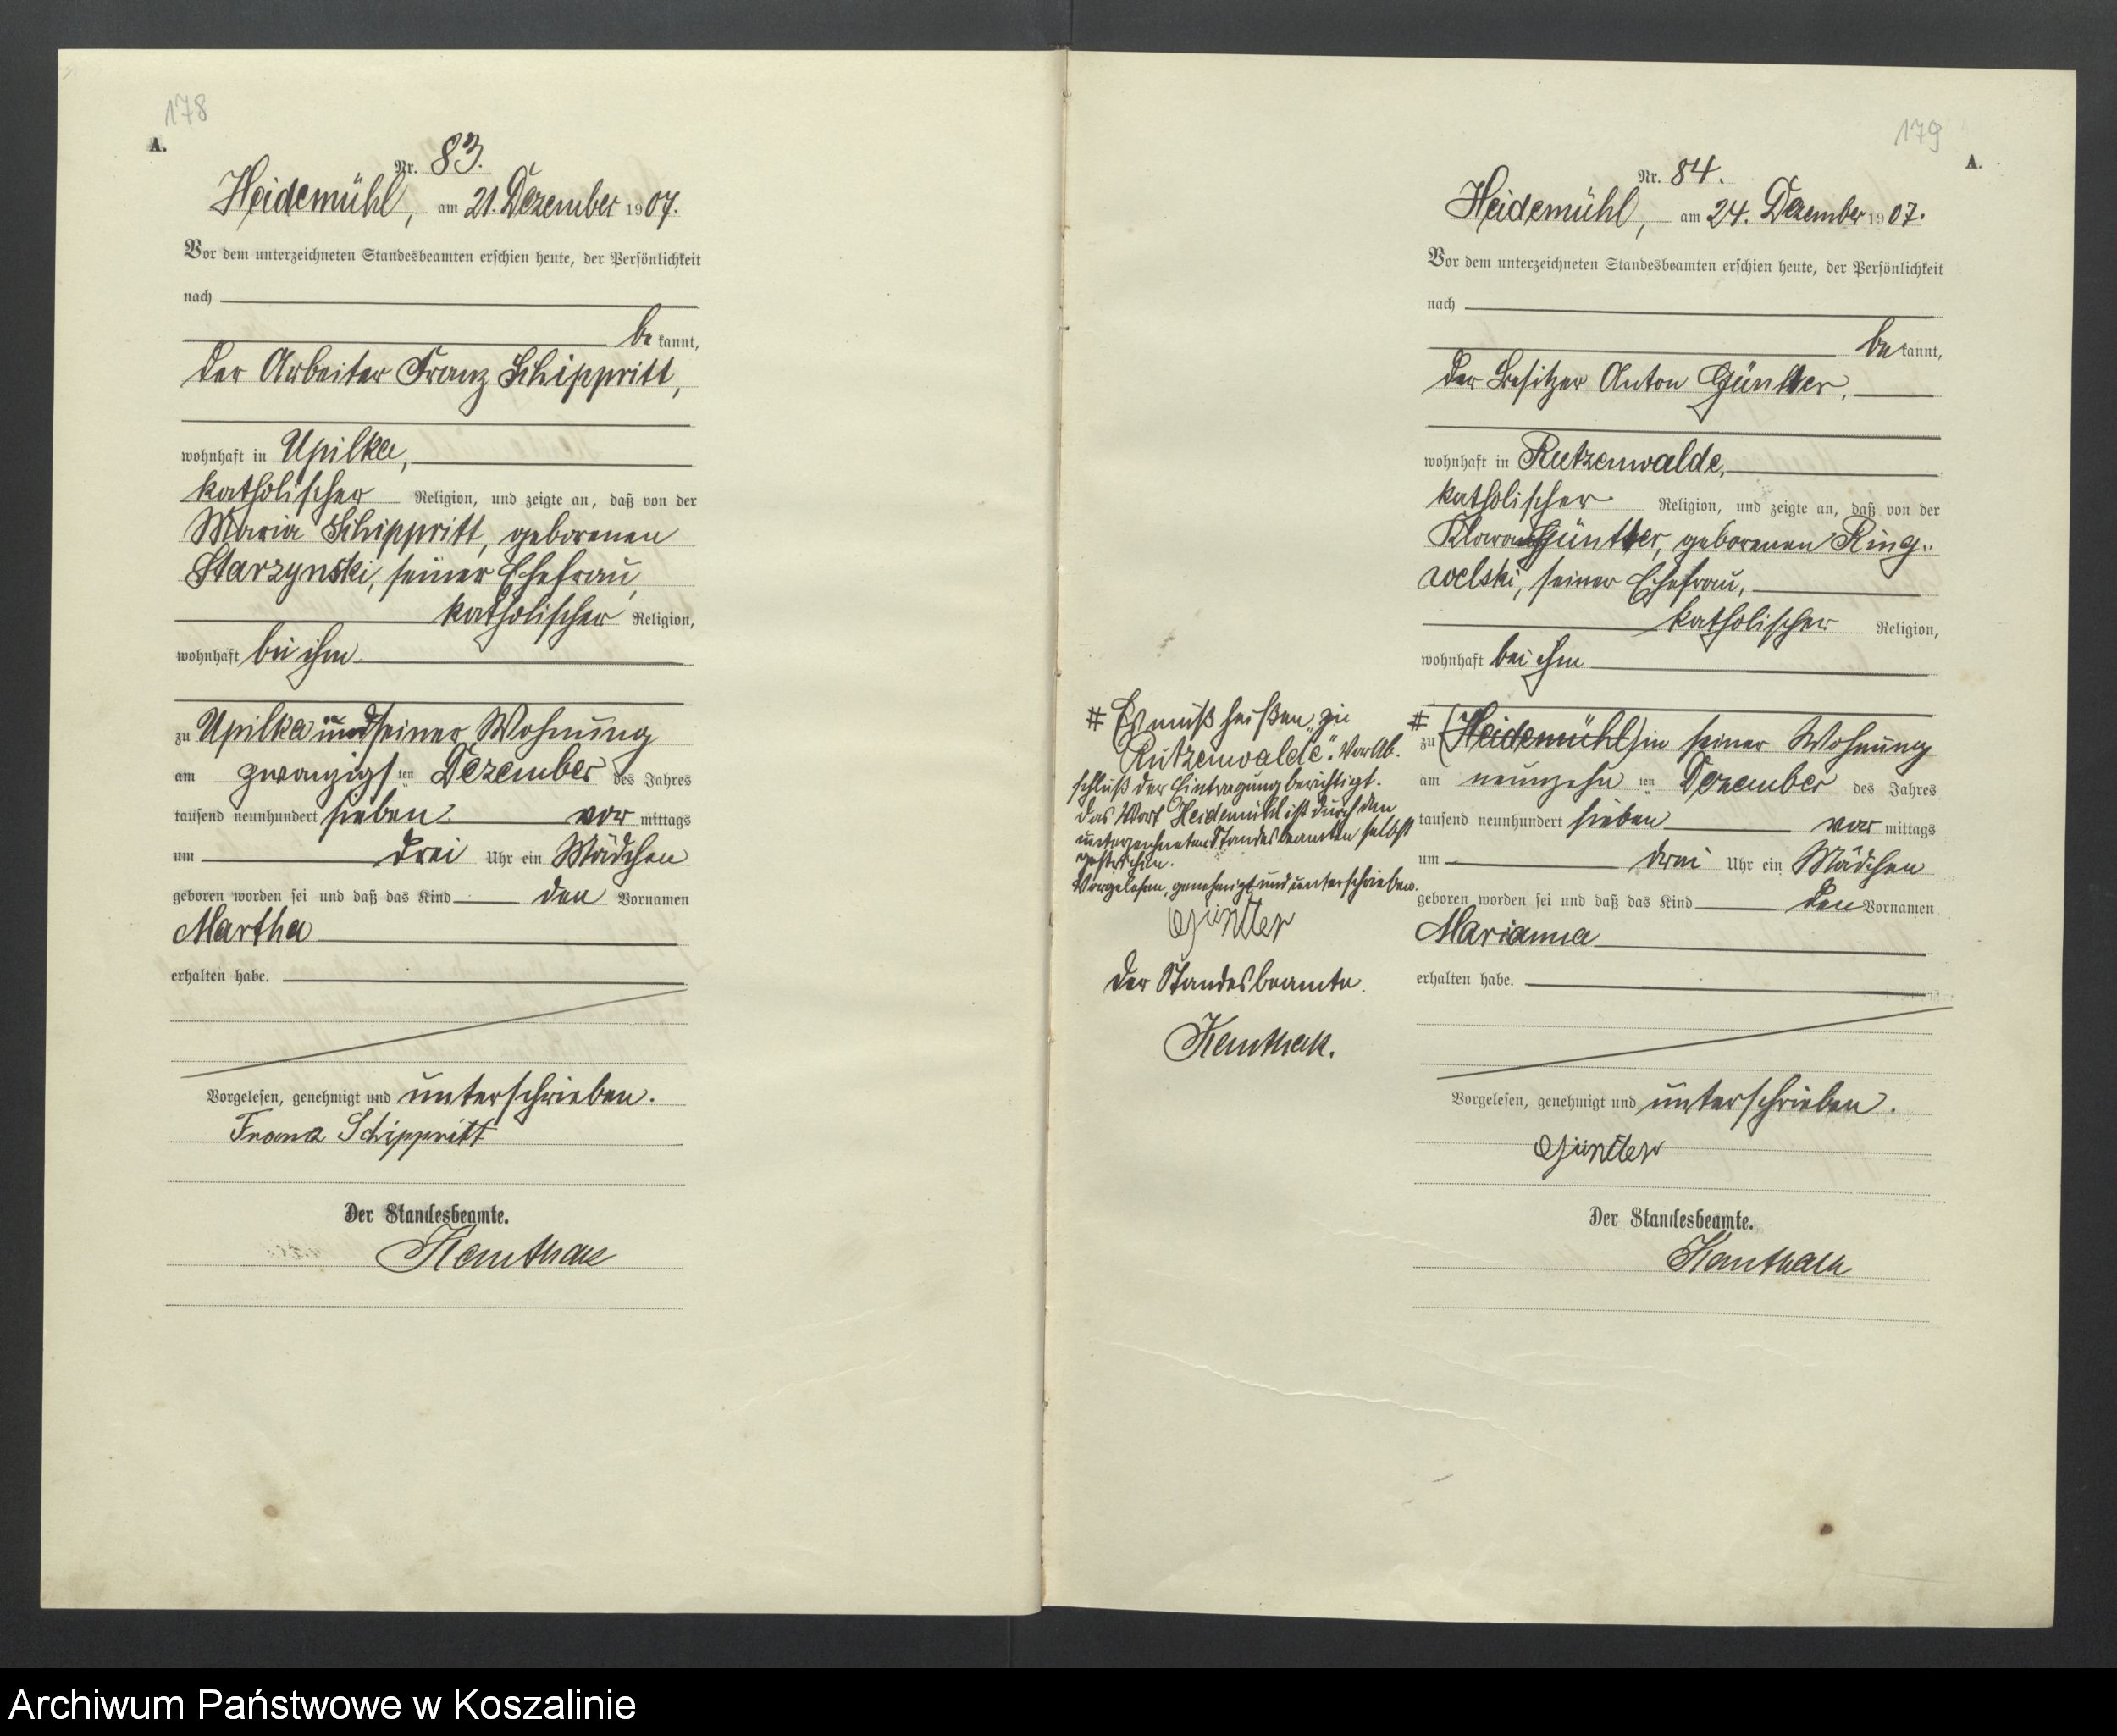 178
A.
Nr. 83.
Heidemühl, am 21. Dezember 1907.
Vor dem unterzeichneten Standesbeamten erschien heute, der Persönlichkeit
nach
be kannt,
der Arbeiter Franz Schippritt,
wohnhaft in Upilka,
katholischer Religion, und zeigte an, daß von der
Maria Schippritt, geborenen
Starzynski, seiner Ehefrau,
katholischer Religion,
wohnhaft bei ihm
zu Upilka in seiner Wohnung
am zwanzigsten Dezember des Jahres
tausend neunhundert sieben vor mittags
um drei Uhr ein Mädchen
geboren worden sei und daß das Kind den Vornamen
Martha
erhalten habe.
Vorgelesen, genehmigt und unterschrieben.
Franz Schippritt
Der Standesbeamte.
179
A.
Nr. 84.
Heidemühl, am 24. Dezember 1907.
Vor dem unterzeichneten Standesbeamten erschien heute, der Persönlichkeit
nach
be kannt,
der Besitzer Anton Günther,
wohnhaft in Rutzenwalde,
katholischer Religion, und zeigte an, daß von der
Klara Günther, geborenen Ring-
welski, seiner Ehefrau,
katholischer Religion,
wohnhaft bei ihm
# zu (Heidemühl) in seiner Wohnung
am neunzehnten Dezember des Jahres
tausend neunhundert sieben vor mittags
um drei Uhr ein Mädchen
geboren worden sei und daß das Kind den Vornamen
Marianna
erhalten habe.
Vorgelesen, genehmigt und unterschrieben.
Günther
Der Standesbeamte.
# Es muß heißen "zu
Rutzenwalde". Vor Ab-
schluß der Eintragung berichtigt.
Das Wort Heidemühl ist durch den
unterzeichneten Standesbeamten selbst
gestrichen.
Vorgelesen, genehmigt und unterschrieben.
Günther
Der Standesbeamte.
Archiwum Państwowe w Koszalinie